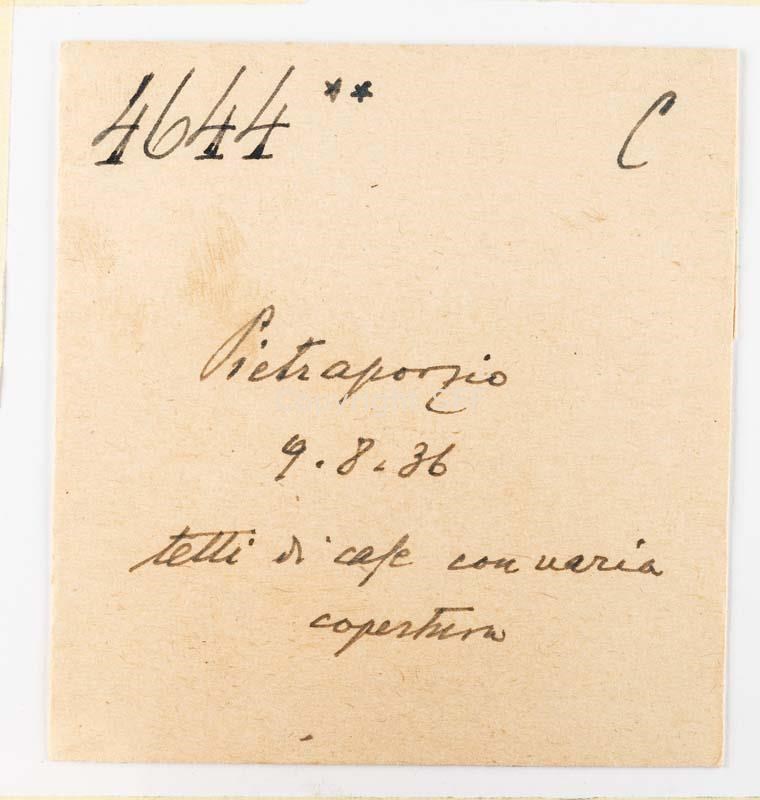 4644 ** C
Pietraporzio
9.8.36
tetti di case con varia
copertura